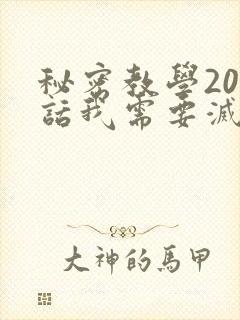 秘密教學20
話我需要滅
大神的馬甲